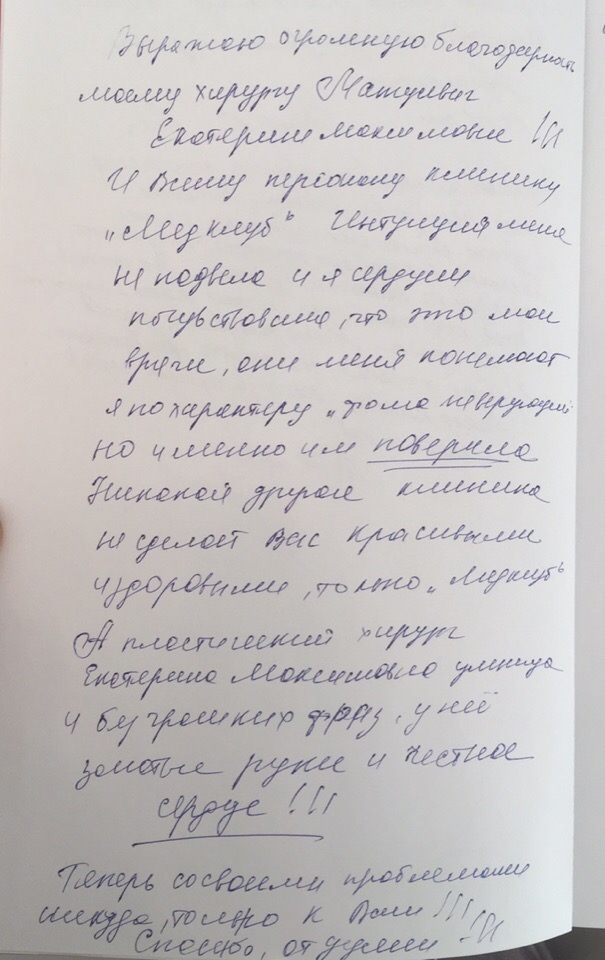 Выражаю огромную благодарность
моему хирургу Матусевич
Екатерине Максимовне !!!
И всему персоналу клиники
„Медклуб“ Интуиция меня
не подвела и я сердцем
почувствовала, что это мои
врачи, они меня понимают
я по характеру „фома неверующий“
но именно им поверила
Никакая другая клиника
не сделает Вас красивыми
и здоровыми, только „Медклуб“
А пластический хирург
Екатерина Максимовна умница
и без громких фраз, у неё
золотые руки и честное
сердце !!!
Теперь со своими проблемами
никуда, только к Вам !!!
Спасибо, от души !!!